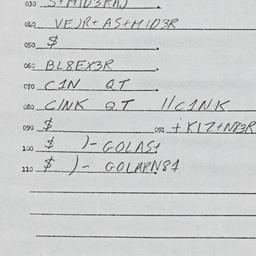 030 S+MID3RA)
040 VE)R+ AS+MID3R
050 $
060 BL8EX3R
070 C1N QT
080 C/NK QT //C1NK
090 $ 091 +K1Z+N83R
100 $ )-GOLAS1
110 $ )- GOLAPN81